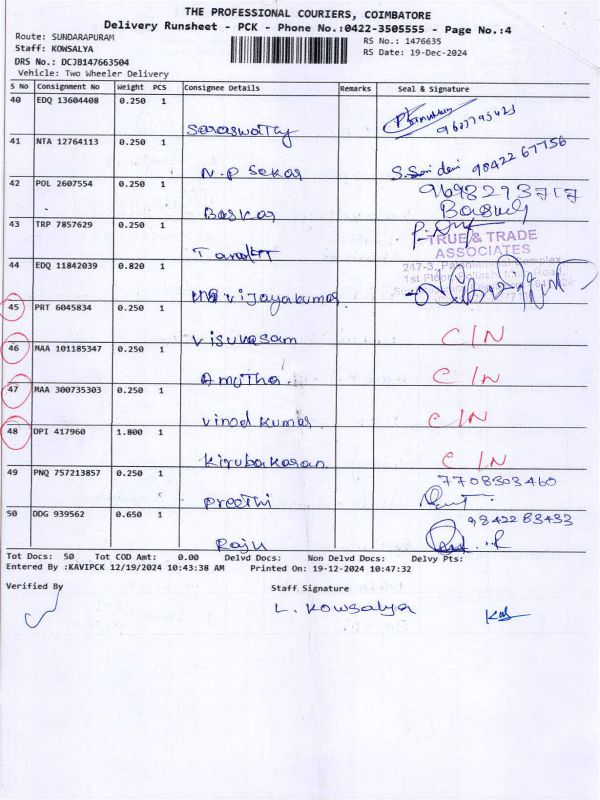 THE PROFESSIONAL COURIERS, COIMBATORE
Delivery Runsheet - PCK - Phone No.:0422-3505555 - Page No.:4
Route: SUNDARAPURAM
RS No.: 1476635
Staff: KOWSALYA
RS Date: 19-Dec-2024
DRS No.: DCJB147663504
Vehicle: Two Wheeler Delivery
S No Consignment No Weight PCS Consignee Details Remarks Seal & Signature
40 EDQ 13604408 0.250 1
Saraswathy
41 NTA 12764113 0.250 1
N.P Sekar 98422 67756
42 POL 2607554 0.250 1
Baskar
43 TRP 7857629 0.250 1
TRUE & TRADE
ASSOCIATES
44 EDQ 11842039 0.820 1
Vijayakumar
45 PRT 6045834 0.250 1
Visuvasam C/N
46 MAA 101185347 0.250 1
Amutha. C/N
47 MAA 300735303 0.250 1
Vinod kumar C/N
48 DPI 417960 1.800 1
Kirubakaran C/N
49 PNQ 757213857 0.250 1 7708303460
Preethi
50 DDG 939562 0.650 1 9842283433
Raju
Tot Docs: 50 Tot COD Amt: 0.00 Delvd Docs: Non Delvd Docs: Delvy Pts:
Entered By :KAVIPCK 12/19/2024 10:43:38 AM Printed On: 19-12-2024 10:47:32
Verified By Staff Signature
L. Kowsalya